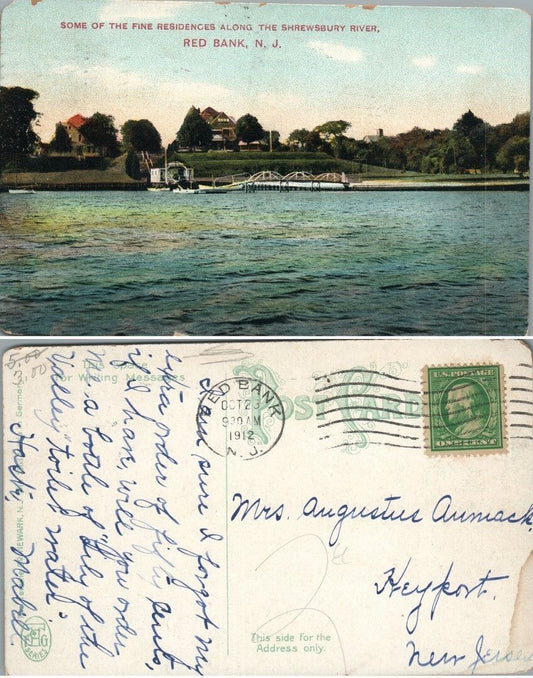 SOME OF THE FINE RESIDENCES ALONG THE SHREWSBURY RIVER,
RED BANK, N. J.
5.00
3.00
This
for Writing Messages
POST CARD
RED BANK
OCT 23
9 30 AM
1912
N. J.
U.S. POSTAGE
ONE CENT
I am sure I forgot my
extra order of fifty cents,
if I have, will you order
me a bottle of "Lily of the
Valley" toilet water."
Hast'y,
Mabel.
Mrs. Augustus Aumack,
Keyport,
New Jersey
This side for the
Address only.
NEWARK, N.
German
SERIES